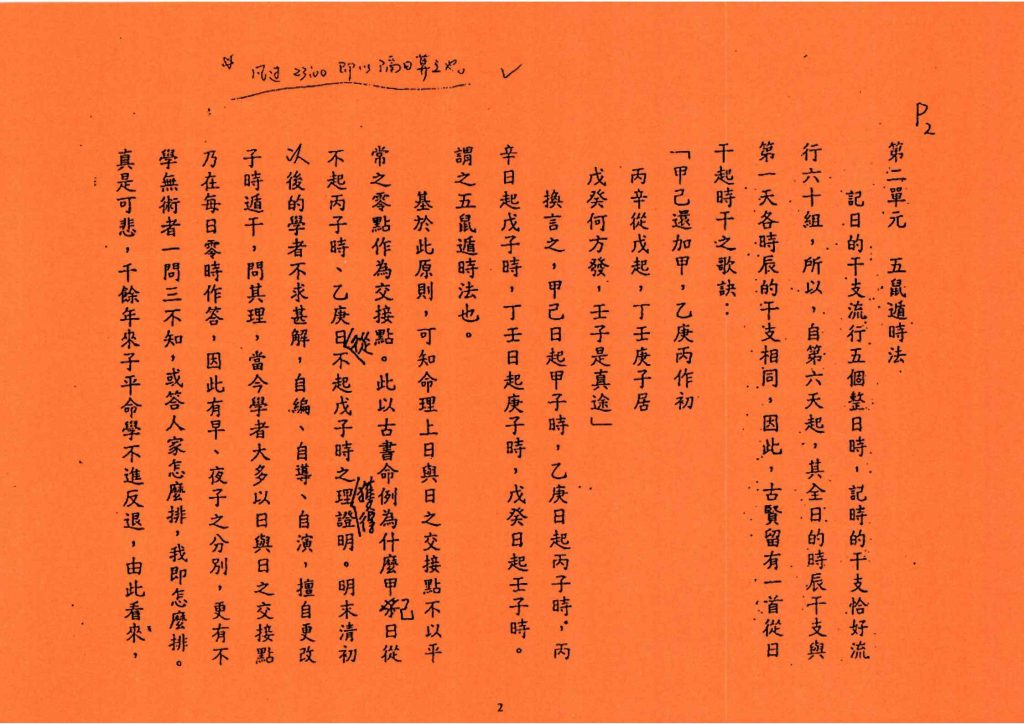 P2
凡過 23:00 即以隔日算之也。
第二單元　五鼠遁時法
記日的干支流行五個整日時，記時的干支恰好流
行六十組，所以，自第六天起，其全日的時辰干支與
第一天各時辰的干支相同，因此，古賢留有一首從日
干起時干之歌訣：
「甲己還加甲，乙庚丙作初
丙辛從戊起，丁壬庚子居
戊癸何方發，壬子是真途」
換言之，甲己日起甲子時，乙庚日起丙子時，丙
辛日起戊子時，丁壬日起庚子時，戊癸日起壬子時。
謂之五鼠遁時法也。
基於此原則，可知命理上日與日之交接點不以平
常之零點作為交接點。此以古書命例為什麼甲己日從
不起丙子時、乙庚日從不起戊子時之理獲得證明。明末清初
以後的學者不求甚解，自編、自導、自演，擅自更改
子時遁干，問其理，當今學者大多以日與日之交接點
乃在每日零時作答，因此有早、夜子之分別，更有不
學無術者一問三不知，或答人家怎麼排，我即怎麼排。
真是可悲，千餘年來子平命學不進反退，由此看來，
2